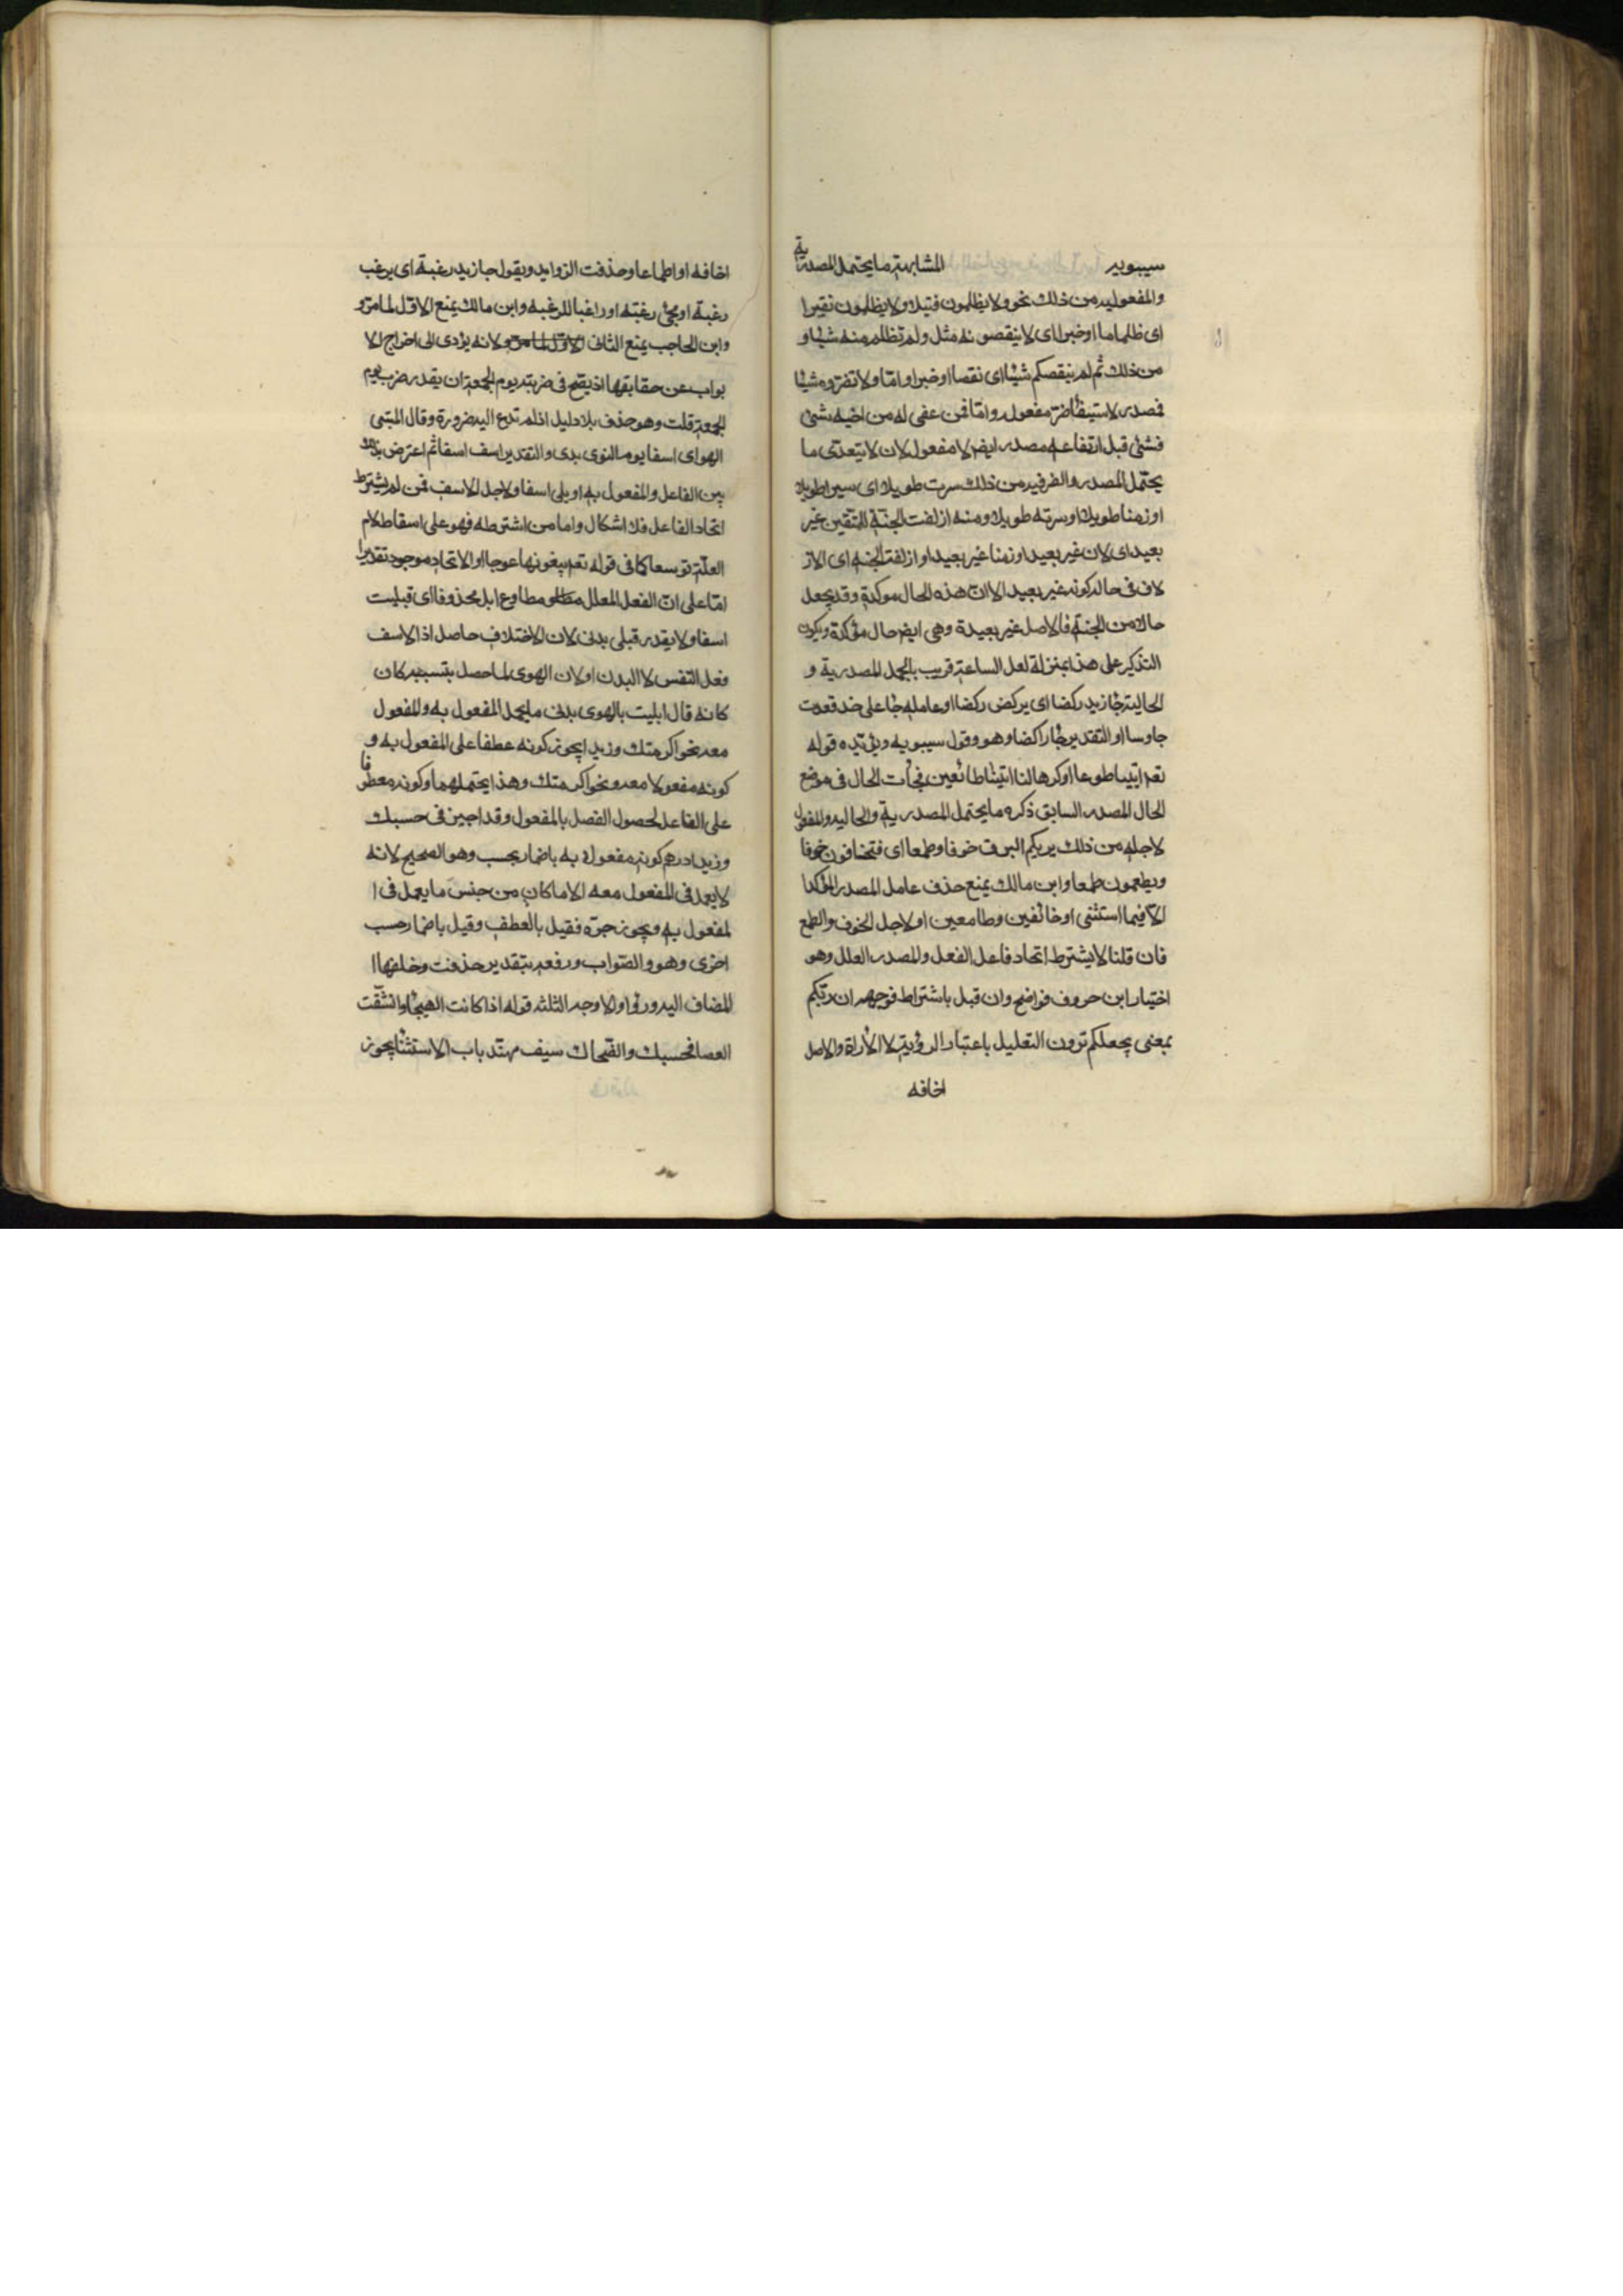 سيبويه المشابهة ما يحتمل المصدرية
والمفعوليه من ذلك نحو ولا يظلمون فتيلا ولا يظلمون نقيرا
اى ظلما ما او خيرا اى لا ينقصونه مثل ولم تظلم منه شيئا و
من ذلك ثم لم ينقصكم شيئا اى نقصا او خيرا واما ولا تضروه شيئا
فمصدر لاستيفا ضر مفعوله واما فمن عفى له من اخيه شئ
فشئ قبل ارتفاعه مصدر ايضا لا مفعول لان لا يتعدى ما
يحتمل المصدر والظرفيه من ذلك سرت طويلا اى سيرا طويلا
او زمنا طويلا او سرته طويلا ومنه ازلفت الجنة للمتقين غير
بعيد اى لان غير بعيد او زمنا غير بعيد او ازلفت الجنه اى الاز
لاف فى حالة كونه غير بعيد الا ان هذه الحال موكدة وقد يجعل
حالا من الجنة فالاصل غير بعيدة وهى ايضا حال مؤكدة ويكون
التذكير على هذا بمنزلة لعل الساعة قريب بالجمل المصدرية و
الحالية جأ زيد ركضا اى يركض ركضا او عامله جأ على ضد قعدت
جلوسا او التقدير جأ راكضا وهو وقول سيبويه ويؤيده قوله
تعم ايتيا طوعا او كرها لنا اتينا طائعين فجأت الحال فى موضع
الحال المصدر السابق ذكره ما يحتمل المصدرية والحاليه والمفعول
لاجله من ذلك يريكم البرق خوفا وطمعا اى فتخافون خوفا
ويطعمون طمعا وابن مالك يمنع حذف عامل المصدر المؤكدا
الا فيما استثنى او خائفين وطامعين او لاجل الخوف والطمع
فان قلنا لا يشترط اتحاد فاعل الفعل والمصدر العلل وهو
اختيار ابن حروف فواضح وان قبل باشتراط فوجهه ان ربكم
بمعنى يجعلكم ترون التعليل باعتبار الرؤية لا الأراة والاصل
اخافه
اخافه او اطماعا وحذفت الزوايد ويقول جا زيد رغبة اى يرغب
رغبة او مجئ رغبته او راغبا للرغبه وابن مالك يمنع الاول لما مر و
وابن الحاجب يمنع الثانى لانه يؤدى الى اخراج الا
بواب عن حقايقها اذ يصح فى ضربته يوم الجمعة ان يقدر ضرب يوم
الجمعة قلت وهو حذف بلا دليل اذ لم تدع اليه ضرورة وقال المتبى
الهوى اسفا يوم النوى بدى والتقدير اسف اسفا ثم اعترض بذلك
بين الفاعل والمفعول به او يلى اسفا ولاجل الاسف فمن لم يشترط
اتحاد الفاعل فلا اشكال واما من اشترطه فهو على اسقاط لام
العلة توسعا كما فى قوله تعم يبغونها عوجا او الاتحاد موجود تقديرا
اما على ان الفعل المعلل مطاوع ابل محذوفا اى قبليت
اسفا ولا يقدر قبلى بدنى لان الاختلاف حاصل اذ الاسف
فعل النفس لا البدن او لان الهوى لما حصل بتسببه كان
كانه قال ابليت بالهوى بدنى ما يحمل المفعول به والمفعول
معه نحو اكرمتك وزيدا يجوز كونه عطفا على المفعول به و
كونه مفعولا معه ونحو اكرمتك وهذا يحتملهما وكونه معطوفا
على الفاعل لحصول الفصل بالمفعول وقد اجيز فى حسبك
وزيدا درهم كونه مفعولا به باضمار يحسب وهو الصحيح لانه
لا يعمل فى المفعول معه الا ما كان من جنس ما يعمل فى ا
لمفعول به ويجوز جره فقيل بالعطف وقيل باضمار حسب
اخرى وهو والصواب ورفعه بتقدير حذفت وخلفها ا
المضاف اليه ورووا والاوجه الثلثه قوله اذا كانت الهيجأ وانشقت
العصا فحسبك والضحاك سيف مهند باب الاستثنا يجوز